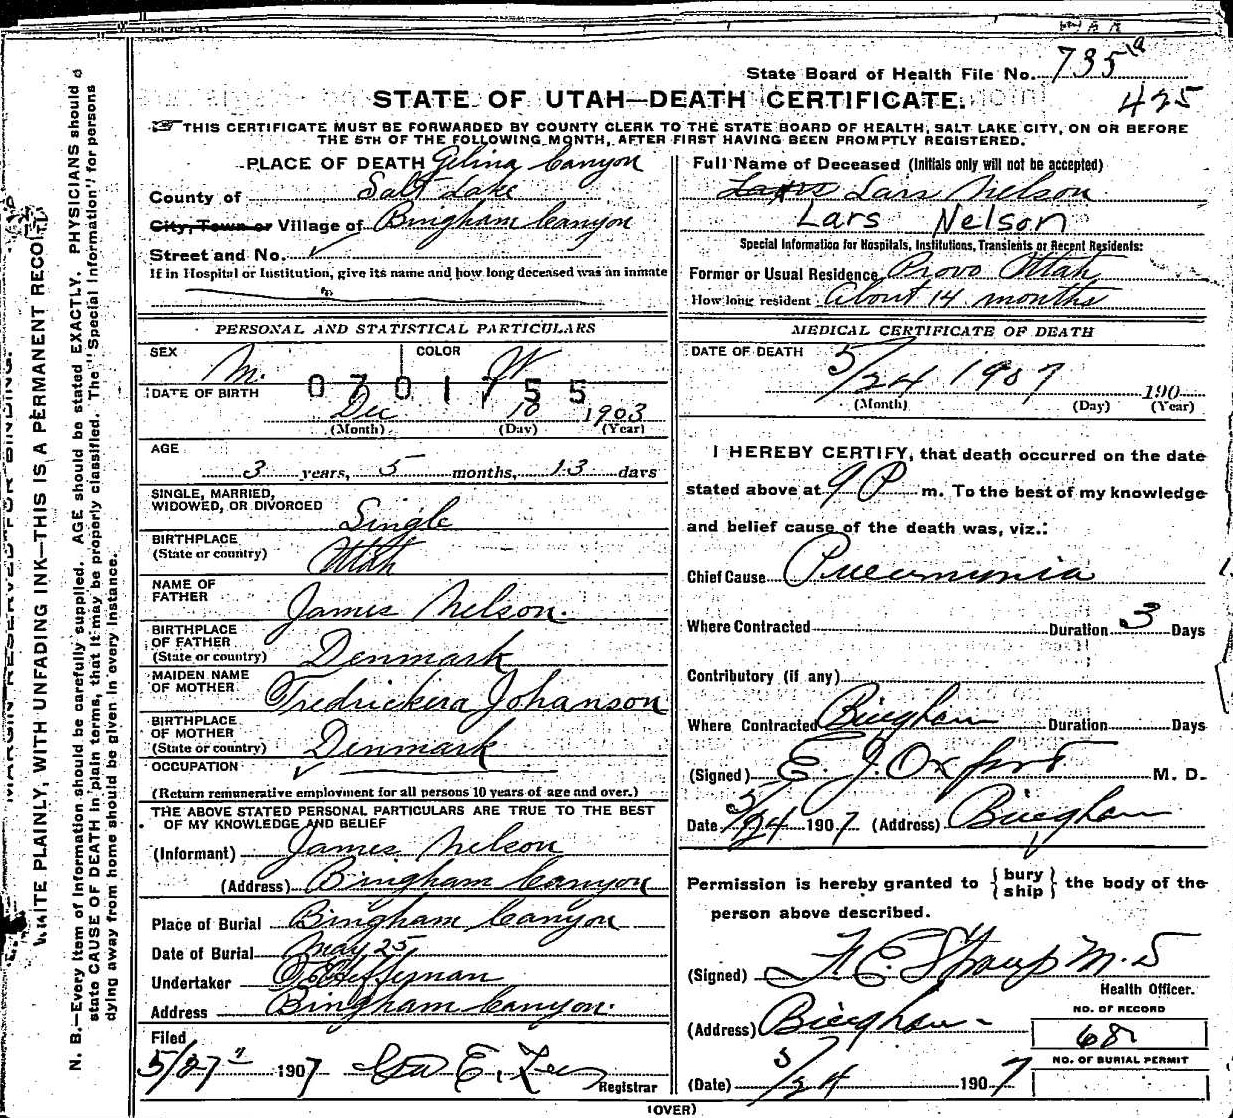 State Board of Health File No. 735 a
425
STATE OF UTAH—DEATH CERTIFICATE.
THIS CERTIFICATE MUST BE FORWARDED BY COUNTY CLERK TO THE STATE BOARD OF HEALTH, SALT LAKE CITY, ON OR BEFORE
THE 5TH OF THE FOLLOWING MONTH, AFTER FIRST HAVING BEEN PROMPTLY REGISTERED.
WRITE PLAINLY, WITH UNFADING INK—THIS IS A PERMANENT RECORD
MARGIN RESERVED FOR BINDING.
N. B.—Every item of information should be carefully supplied. AGE should be stated EXACTLY. PHYSICIANS should
state CAUSE OF DEATH in plain terms, that it may be properly classified. The "Special Information" for persons
dying away from home should be given in every instance.
PLACE OF DEATH Canyon
County of Salt Lake
City, Town or Village of Bingham Canyon
Street and No.
If in Hospital or Institution, give its name and how long deceased was an inmate
PERSONAL AND STATISTICAL PARTICULARS
SEX M. COLOR W
0701755
DATE OF BIRTH Dec 10 1903
(Month) (Day) (Year)
AGE
3 years, 5 months, 13 days
SINGLE, MARRIED,
WIDOWED, OR DIVORCED Single
BIRTHPLACE
(State or country) Utah
NAME OF
FATHER James Nelson.
BIRTHPLACE
OF FATHER
(State or country) Denmark
MAIDEN NAME
OF MOTHER Fredrickera Johanson
BIRTHPLACE
OF MOTHER
(State or country) Denmark
OCCUPATION
(Return remunerative employment for all persons 10 years of age and over.)
THE ABOVE STATED PERSONAL PARTICULARS ARE TRUE TO THE BEST
OF MY KNOWLEDGE AND BELIEF
(Informant) James Nelson
(Address) Bingham Canyon
Place of Burial Bingham Canyon
Date of Burial May 25
Undertaker
Address Bingham Canyon.
Filed
5/27 1907 E. Registrar
Full Name of Deceased (Initials only will not be accepted)
Lars Nelson
Lars Nelson
Special Information for Hospitals, Institutions, Transients or Recent Residents:
Former or Usual Residence Provo Utah
How long resident About 14 months
MEDICAL CERTIFICATE OF DEATH
DATE OF DEATH
5/24 1907 190
(Month) (Day) (Year)
I HEREBY CERTIFY, that death occurred on the date
stated above at 9 P m. To the best of my knowledge
and belief cause of the death was, viz.:
Chief Cause Pneumynia
Where Contracted Duration 3 Days
Contributory (if any)
Where Contracted Bingham Duration Days
(Signed) E. J. Oxford M. D.
Date 5/24 1907 (Address) Bingham
Permission is hereby granted to { bury
ship } the body of the
person above described.
(Signed) F E Straup M.D
Health Officer.
(Address) Bingham
NO. OF RECORD
68
NO. OF BURIAL PERMIT
(Date) 5/24 1907
(OVER)